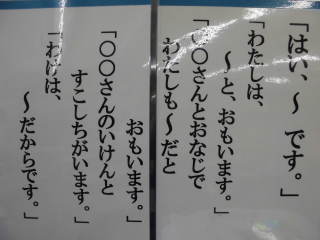 「はい、～ です。」
「わたしは、
～と、おもいます。」
「〇〇さんとおなじで
わたしも～だと
おもいます。」
「〇〇さんのいけんと
すこしちがいます。」
「わけは、
～だからです。」